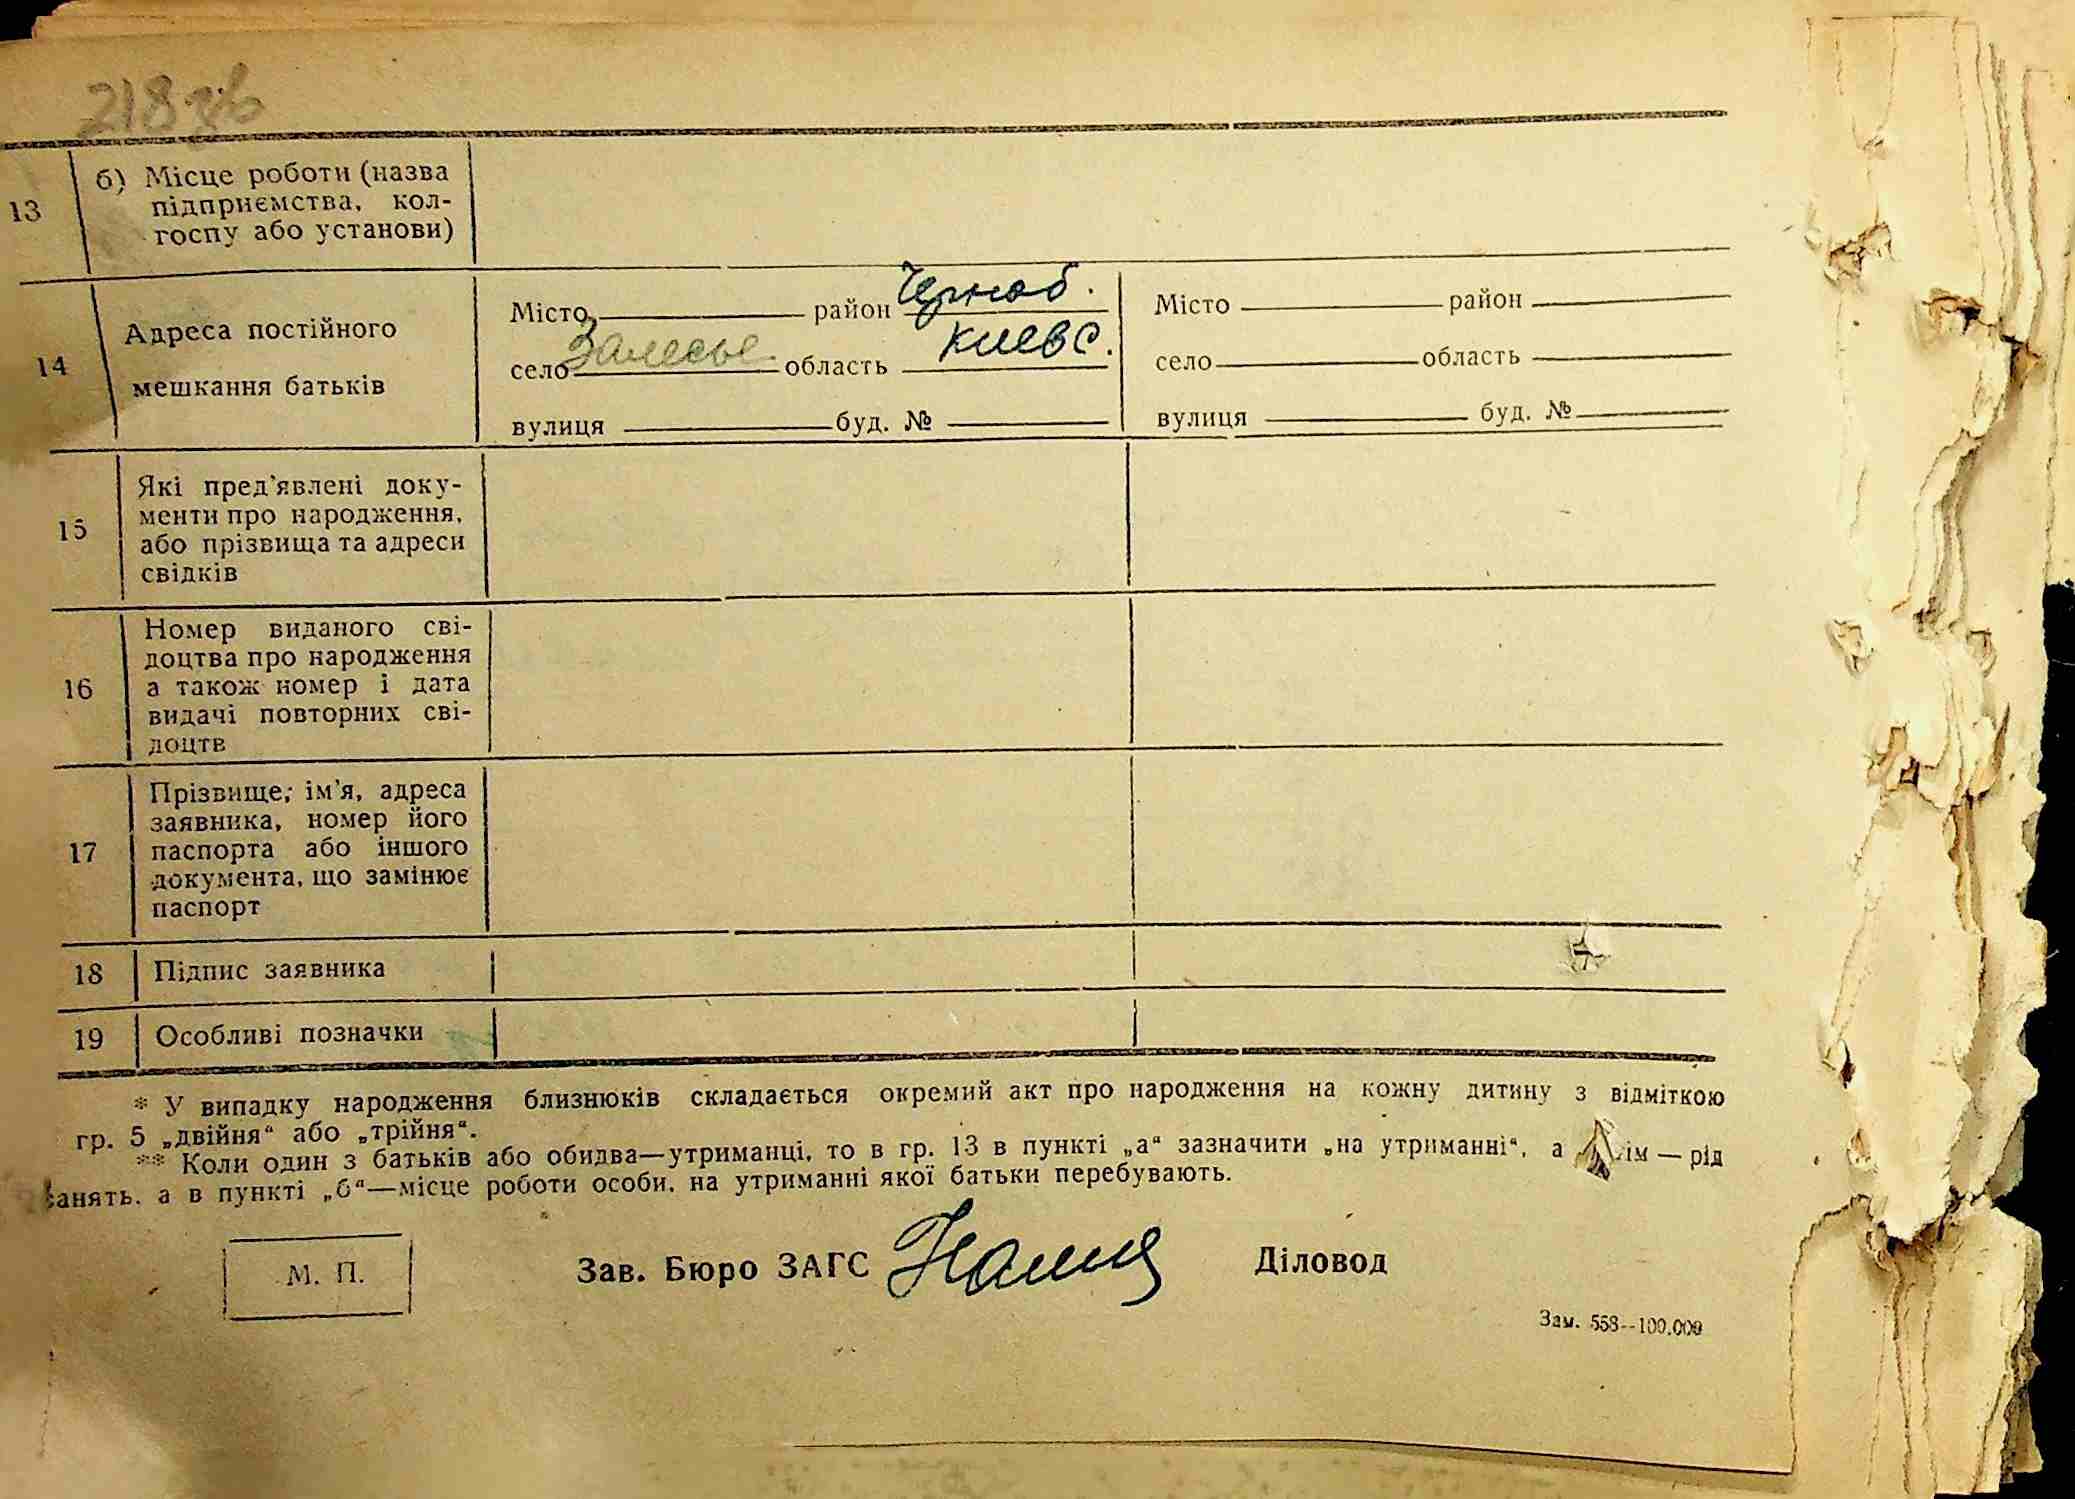 218 зв
13 б) Місце роботи (назва
підприємства, кол-
госпу або установи)
14 Адреса постійного
мешкання батьків
Місто район Черноб. Місто район
село Залесье область Киевс. село область
вулиця буд. № вулиця буд. №
15 Які пред'явлені доку-
менти про народження,
або прізвища та адреси
свідків
16 Номер виданого сві-
доцтва про народження
а також номер і дата
видачі повторних сві-
доцтв
17 Прізвище, ім'я, адреса
заявника, номер його
паспорта або іншого
документа, що замінює
паспорт
18 Підпис заявника
19 Особливі позначки
* У випадку народження близнюків складається окремий акт про народження на кожну дитину з відміткою
гр. 5 „двійня“ або „трійня“.
** Коли один з батьків або обидва—утриманці, то в гр. 13 в пункті „а“ зазначити „на утриманні“, а ім — рід
занять, а в пункті „б“—місце роботи особи, на утриманні якої батьки перебувають.
М. П. Зав. Бюро ЗАГС Діловод
Зам. 558--100.000